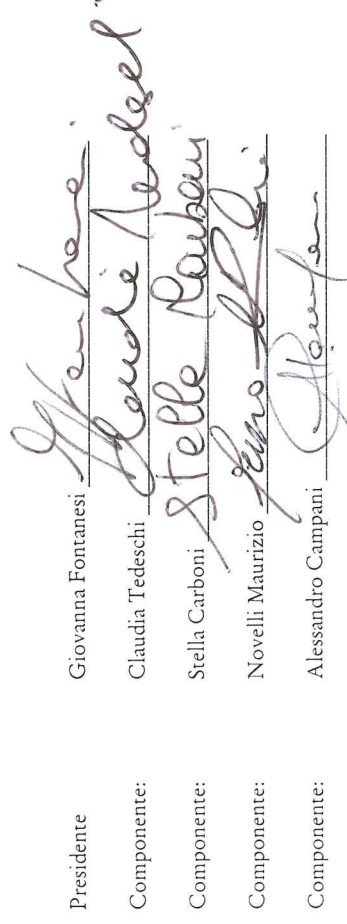 Presidente Giovanna Fontanesi
Componente: Claudia Tedeschi Claudia Tedeschi
Componente: Stella Carboni Stella Carboni
Componente: Novelli Maurizio
Componente: Alessandro Campani